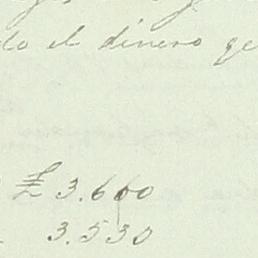 do el dinero qe
£ 3.660
3.530